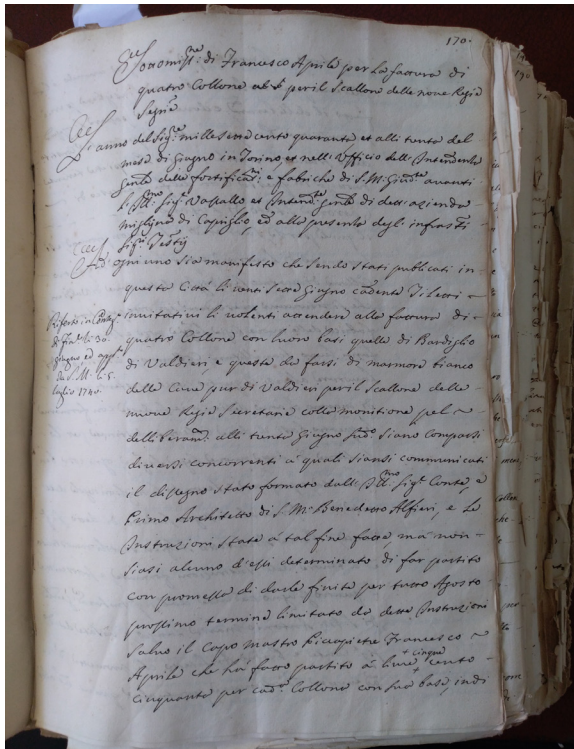 170.
Sottomiss.ne di Francesco Aprile per la fattura di
quatro Collone per il Scallone delle nove Regie
Segrie
L'anno del Sig.e mille sette cento quaranta et alli trenta del
mese di Giugno in Torino, et nell'Ufficio dell'Intendenza
Gen.le delle fortificaz.i e fabriche di S. M. Giud.te avanti
l'Ill.mo Sig.r Vassallo et Intend.te Gen.le di dett'azienda
miglyna di Capriglio, et alla presenza degl'infrasti
Sig.ri Testij
Ad ogni uno sia manifesto che sendo stati publicati in
questa Città li venti sette Giugno cadente Tiletti
invitativi li volenti accendere alla fattura di
quatro Collone con luoro basi quelle di Bardiglio
di Valdieri e queste da farsi di marmora bianco
delle Cave pur di Valdieri per il Scallone delle
nuove Regie Secretarie colla monitione pel
delliberam.to alli trenta Giugno sud.o siano comparsi
diversi concorrenti a quali siansi communicati
il dissegno stato formato dall'Ill.mo Sig.r Conte, e
Primo Architetto di S. M. Benedetto Alfieri, e le
Instruzioni state a tal fine fatte, ma non
siasi alcuno d'essi determinato di far partito
con promessa di darle finite per tutto Agosto
prossimo termine limitato da dette Instruzioni
salvo il Capo mastro Piccapietre Francesco
Aprile che hà fatto partito a livre cento
+ cinque
cinquanta per cad.a Collona con sua base, indi
Riferto in Cong.o
di Fab.e li 30.
Giugno ed app.o
da S. M. li 5.
luglio 1740.